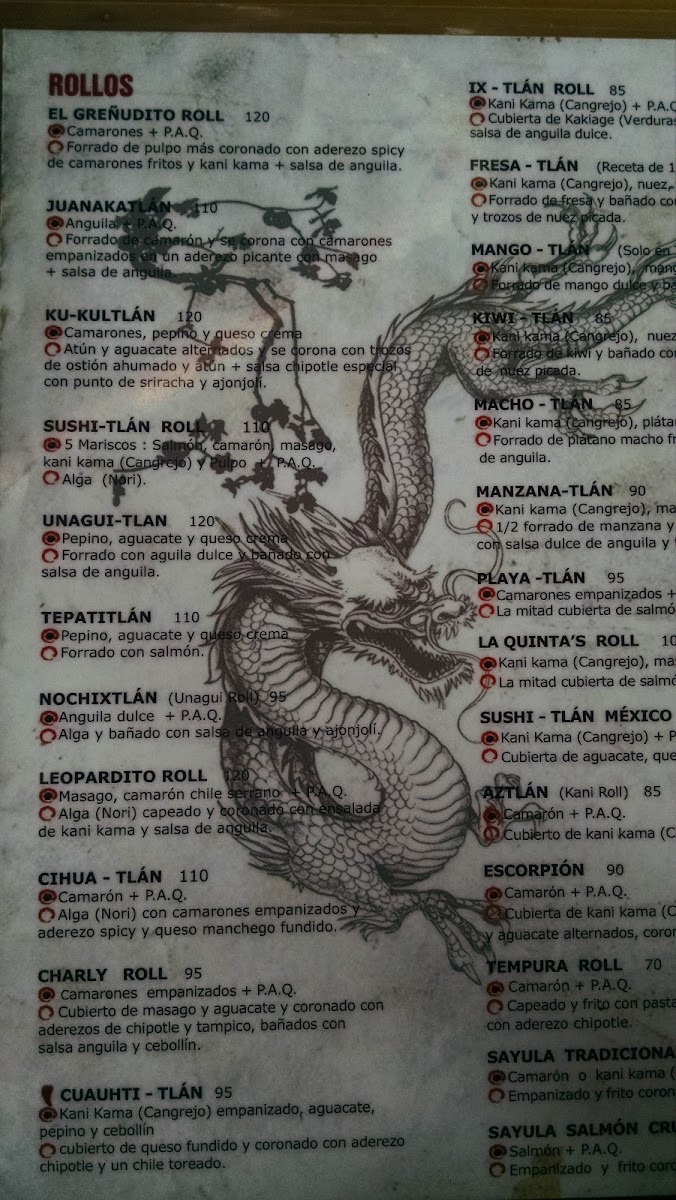 ROLLOS
EL GREÑUDITO ROLL 120
Camarones + P.A.Q.
Forrado de pulpo más coronado con aderezo spicy
de camarones fritos y kani kama + salsa de anguila.
JUANAKATLÁN 110
Anguila + P.A.Q.
Forrado de camarón y se corona con camarones
empanizados en un aderezo picante con masago
+ salsa de anguila.
KU-KULTLÁN 120
Camarones, pepino y queso crema
Atún y aguacate alternados y se corona con trozos
de ostión ahumado y atún + salsa chipotle especial
con punto de sriracha y ajonjolí.
SUSHI-TLÁN ROLL 110
5 Mariscos : Salmón, camarón, masago,
kani kama (Cangrejo) y Pulpo + P.A.Q.
Alga (Nori).
UNAGUI-TLAN 120
Pepino, aguacate y queso crema
Forrado con aguila dulce y bañado con
salsa de anguila.
TEPATITLÁN 110
Pepino, aguacate y queso crema
Forrado con salmón.
NOCHIXTLÁN (Unagui Roll) 95
Anguila dulce + P.A.Q.
Alga y bañado con salsa de anguila y ajonjolí.
LEOPARDITO ROLL 120
Masago, camarón chile serrano + P.A.Q.
Alga (Nori) capeado y coronado con ensalada
de kani kama y salsa de anguila.
CIHUA - TLÁN 110
Camarón + P.A.Q.
Alga (Nori) con camarones empanizados y
aderezo spicy y queso manchego fundido.
CHARLY ROLL 95
Camarones empanizados + P.A.Q.
Cubierto de masago y aguacate y coronado con
aderezos de chipotle y tampico, bañados con
salsa anguila y cebollín.
CUAUHTI - TLÁN 95
Kani Kama (Cangrejo) empanizado, aguacate,
pepino y cebollín
cubierto de queso fundido y coronado con aderezo
chipotle y un chile toreado.
IX - TLÁN ROLL 85
Kani Kama (Cangrejo) + P.A.Q
Cubierta de Kakiage (Verduras
salsa de anguila dulce.
FRESA - TLÁN (Receta de 1
Kani kama (Cangrejo), nuez,
Forrado de fresa y bañado co
y trozos de nuez picada.
MANGO - TLÁN (Solo en
Kani kama (Cangrejo), mang
Forrado de mango dulce y ba
KIWI - TLÁN 85
Kani kama (Cangrejo), nuez
Forrado de kiwi y bañado co
de nuez picada.
MACHO - TLÁN 85
Kani kama (cangrejo), pláta
Forrado de plátano macho fr
de anguila.
MANZANA-TLÁN 90
Kani kama (Cangrejo), ma
1/2 forrado de manzana y
con salsa dulce de anguila y
PLAYA -TLÁN 95
Camarones empanizados +
La mitad cubierta de salmó
LA QUINTA'S ROLL 10
Kani kama (Cangrejo), ma
La mitad cubierta de salmó
SUSHI - TLÁN MÉXICO
Kani Kama (Cangrejo) + P
Cubierta de aguacate, que
AZTLÁN (Kani Roll) 85
Camarón + P.A.Q.
Cubierto de kani kama (C
ESCORPIÓN 90
Camarón + P.A.Q.
Cubierta de kani kama (C
y aguacate alternados, coror
TEMPURA ROLL 70
Camarón + P.A.Q.
Capeado y frito con pasta
con aderezo chipotle.
SAYULA TRADICIONA
Camarón o kani kama (
Empanizado y frito coron
SAYULA SALMÓN CRU
Salmón + P.A.Q.
Empanizado y frito coro